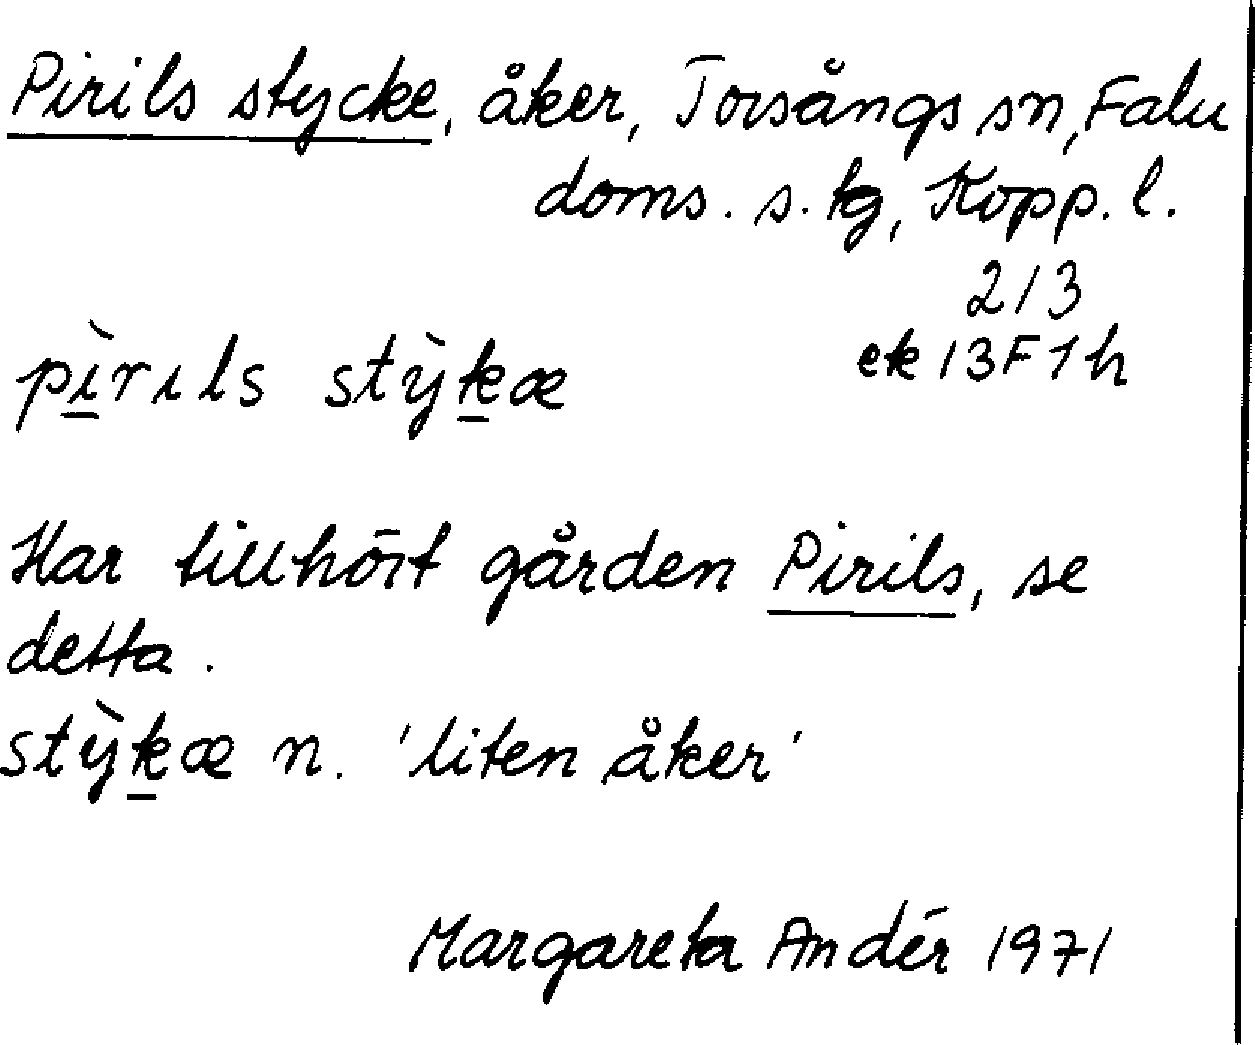 Pirils stycke, åker, Torsångs sn, Falu
doms. s. tg, Kopp. l.
213
ek 13F1h
pìrıls stỳkæ
Har tillhört gården Pirils, se
detta.
stỳkæ n. 'liten åker'
Margareta Andér 1971